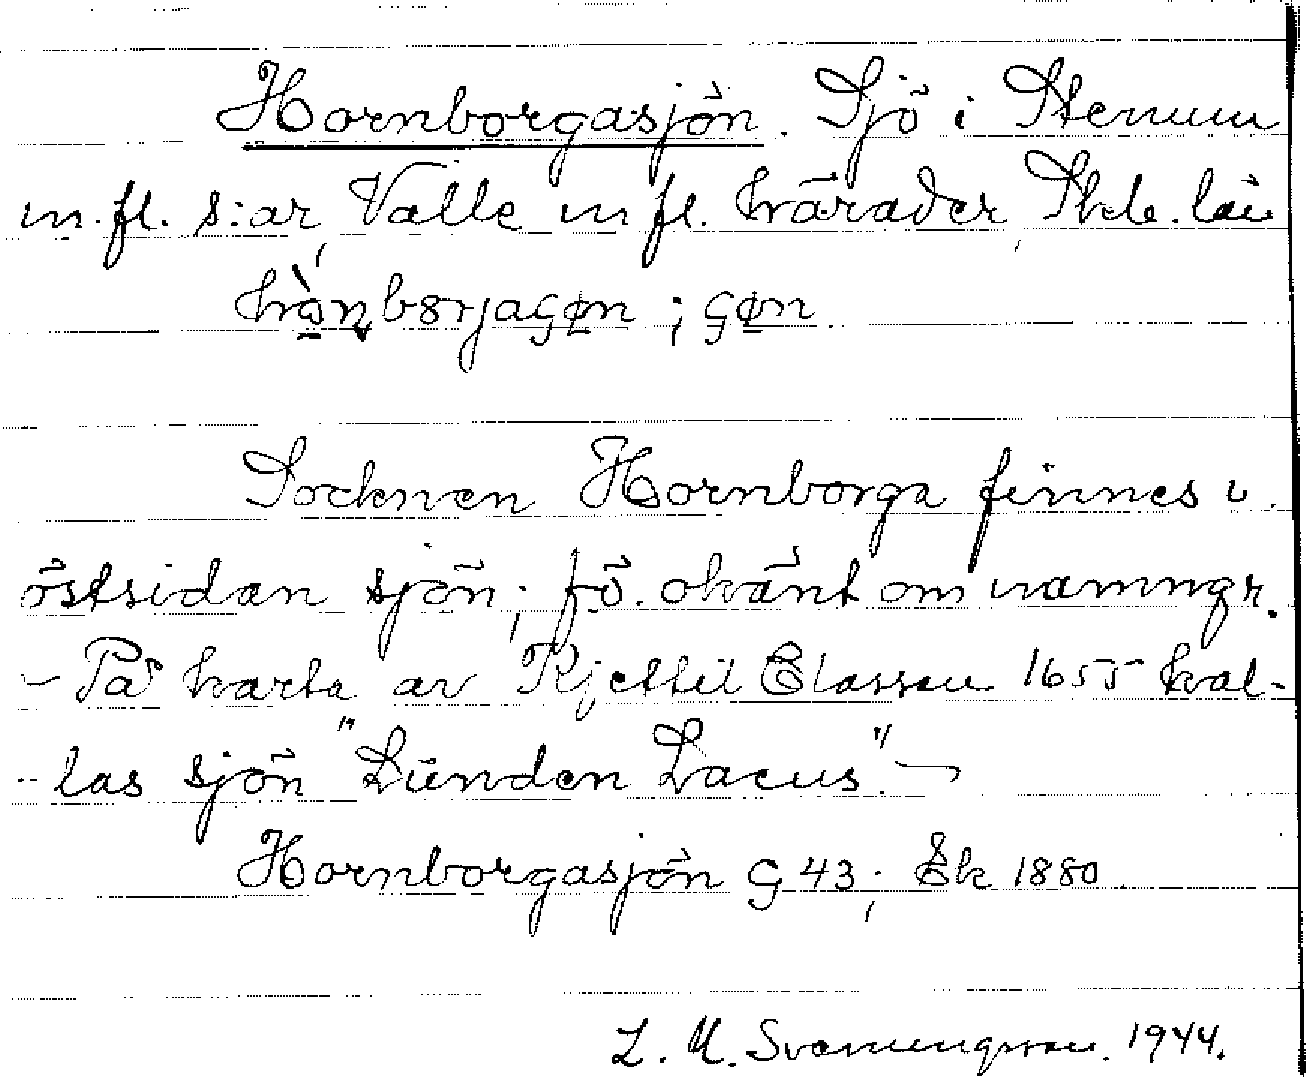 Hornborgasjön. Sjö i Stenum
m.fl. s:ar, Valle m fl. härader, Skb. län
hòn̥bɞrjaʂøn ; ʂøn
Socknen Hornborga finnes v.
östsidan sjön; f.ö. okänt om namngr.
- På karta av Kjettil Classon 1655 kal-
- las sjön "Lünden Lacus". -
Hornborgasjön G 43; Ek 1880.